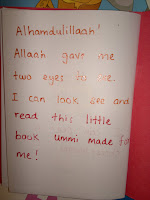 Alhamdulillaah!
Allaah gave me
two eyes to see.
I can look see and
read this little
book ummi made for
me!